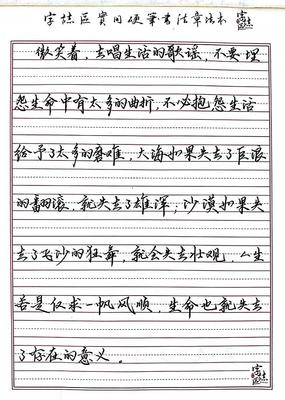 字娃匠实用硬笔书法章法本
微笑着，去唱生活的歌谣，不要埋
怨生命中有太多的曲折，不必抱怨生活
给予了太多的磨难，大海如果失去了巨浪
的翻滚，就失去了雄浑，沙漠如果失
去了飞沙的狂舞，就会失去壮观，人生
若是仅求一帆风顺，生命也就失去
了存在的意义。